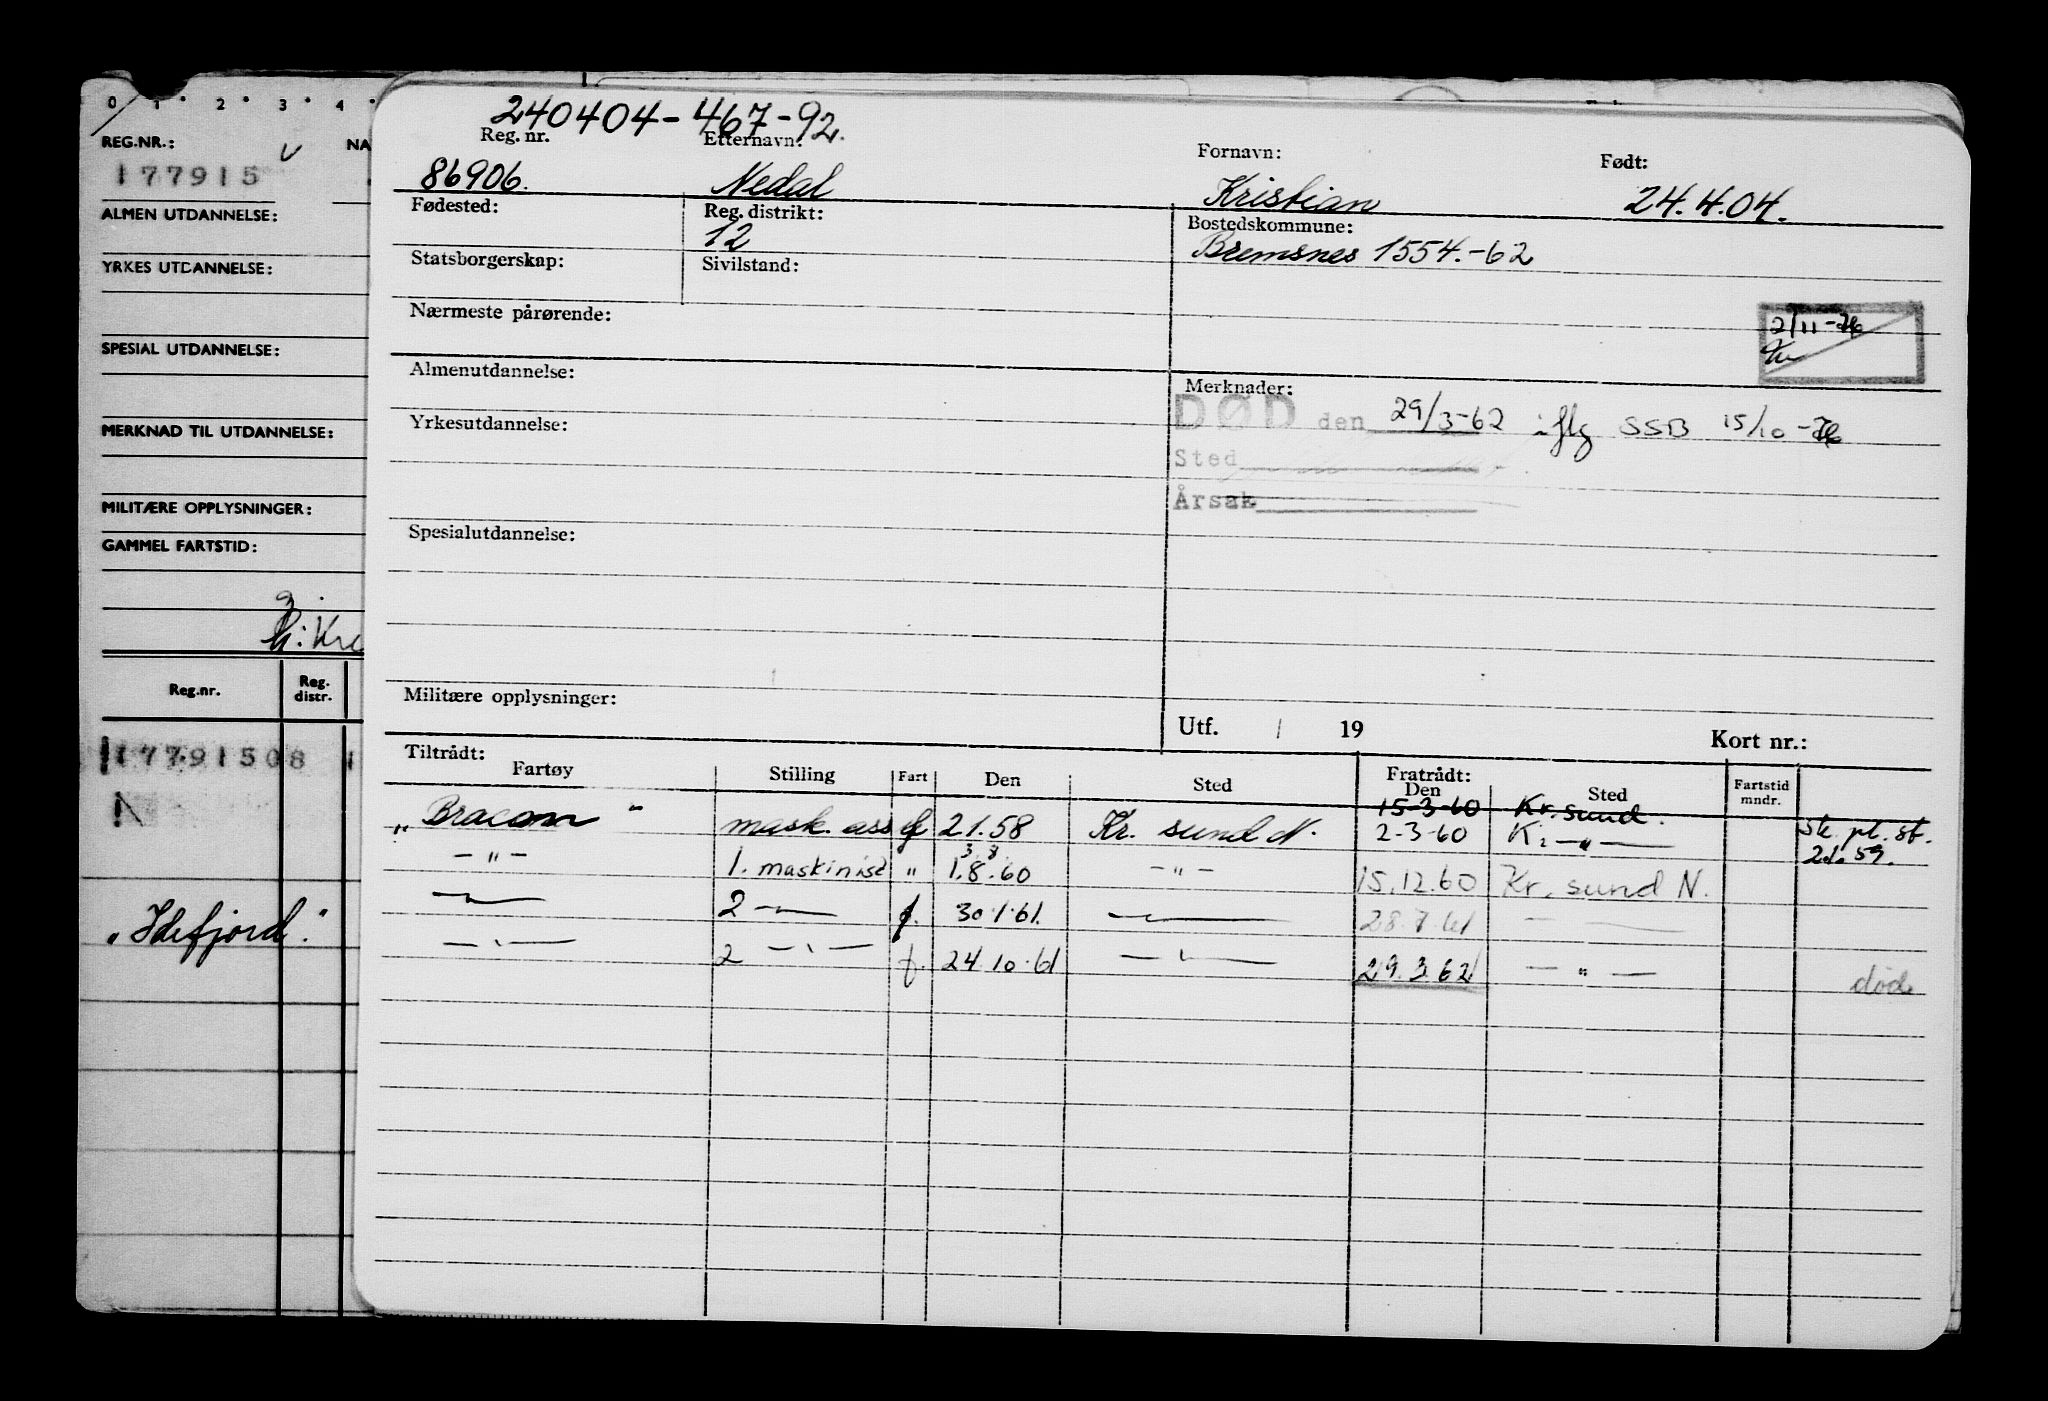 0 1 2 3 4
REG.NR.: NA
177915
ALMEN UTDANNELSE:
YRKES UTDANNELSE:
SPESIAL UTDANNELSE:
MERKNAD TIL UTDANNELSE:
MILITÆRE OPPLYSNINGER:
GAMMEL FARTSTID:
Reg.nr. Reg. distr.
17791508 1
N
"Idefjord."
240404-467-92.
Reg. nr. Etternavn: Fornavn: Født:
86906. Nedal Kristian 24.4.04.
Fødested: Reg. distrikt: Bostedskommune:
12 Bremsnes 1554.-62
Statsborgerskap: Sivilstand:
Nærmeste pårørende:
2/11-76
Almenutdannelse: Merknader:
DØD den 29/3-62 iflg SSB 15/10-76
Yrkesutdannelse:
Sted
Årsak
Spesialutdannelse:
Militære opplysninger:
Utf. / 19 Kort nr.:
Tiltrådt: Fratrådt:
Fartøy Stilling Fart Den Sted Den Sted Fartstid mndr.
15-3-60 Kr. sund.
"Bracom" mask. ass f 2.1.58 Kr. sund N. 2-3-60 K: -"- st. pl. st.
2.1.59.
-"- 1. maskinist " 1.8.60 -"- 15.12.60 Kr. sund N.
-"- 2 -"- f. 30.1.61. -"- 28.7.61 -"-
-"- 2 -"- f. 24.10.61 -"- 29.3.62 -"- død